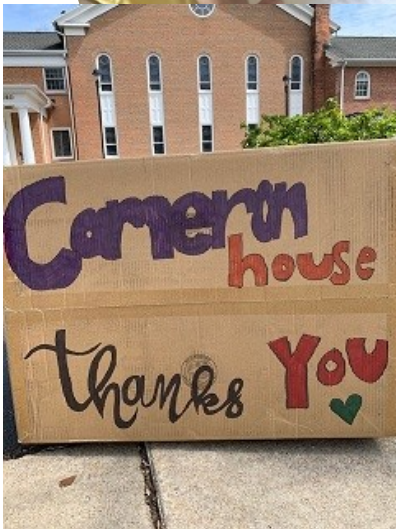 Cameron
house
thanks You